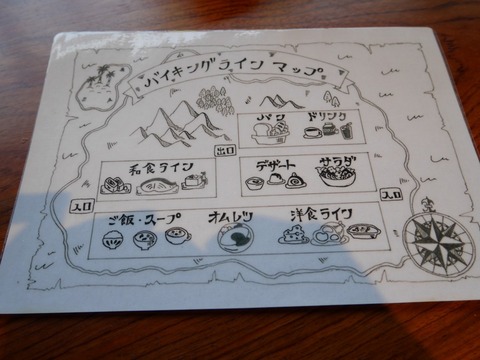 バイキングライン マップ
パン ドリンク
出口
和食ライン
デザート サラダ
入口
入口
ご飯・スープ オムレツ 洋食ライン